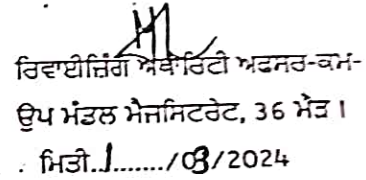 ਰਿਵਾਈਜਿੰਗ ਅਥਾਰਿਟੀ ਅਫਸਰ-ਕਮ-
ਉਪ ਮੰਡਲ ਮੈਜਿਸਟਰੇਟ,
ਮਿਤੀ..1......./03/2024